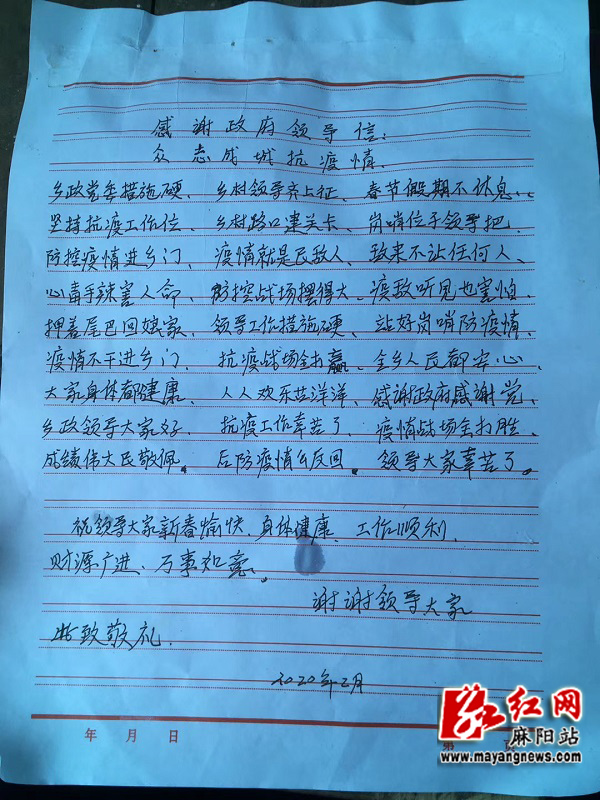 感谢政府领导信:
众志成城抗疫情、
乡政党委措施硬、乡村领导齐上征、春节假期不休息、
坚持抗疫工作位、乡村路口建关卡、岗哨位于领导把、
防控疫情进乡门、疫情就是民敌人、敌来不让任何人、
心毒手辣害人命、防控战场摆得大、疫敌听见也害怕、
押着尾巴回娘家、领导工作措施硬、站好岗哨防疫情、
疫情不干进乡门、抗疫战场全打赢、全乡人民都安心、
大家身体都健康、人人欢乐喜洋洋、感谢政府感谢党、
乡政领导大家好、抗疫工作辛苦了、疫情战场全打胜、
成绩伟大民敬佩。后防疫情反回。领导大家辛苦了。
祝领导大家新春愉快、身体健康、工作顺利、
财源广进、万事如意。
谢谢领导大家
此致敬礼.
2020年2月
年 月 日
第 页
红网
麻阳站
www.mayangnews.com